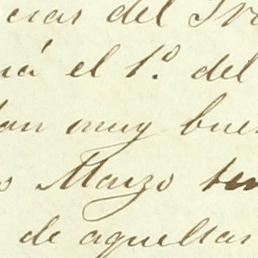 cias del
rá el 1º. del
tan muy bue
o Marzo ten
de aquellas